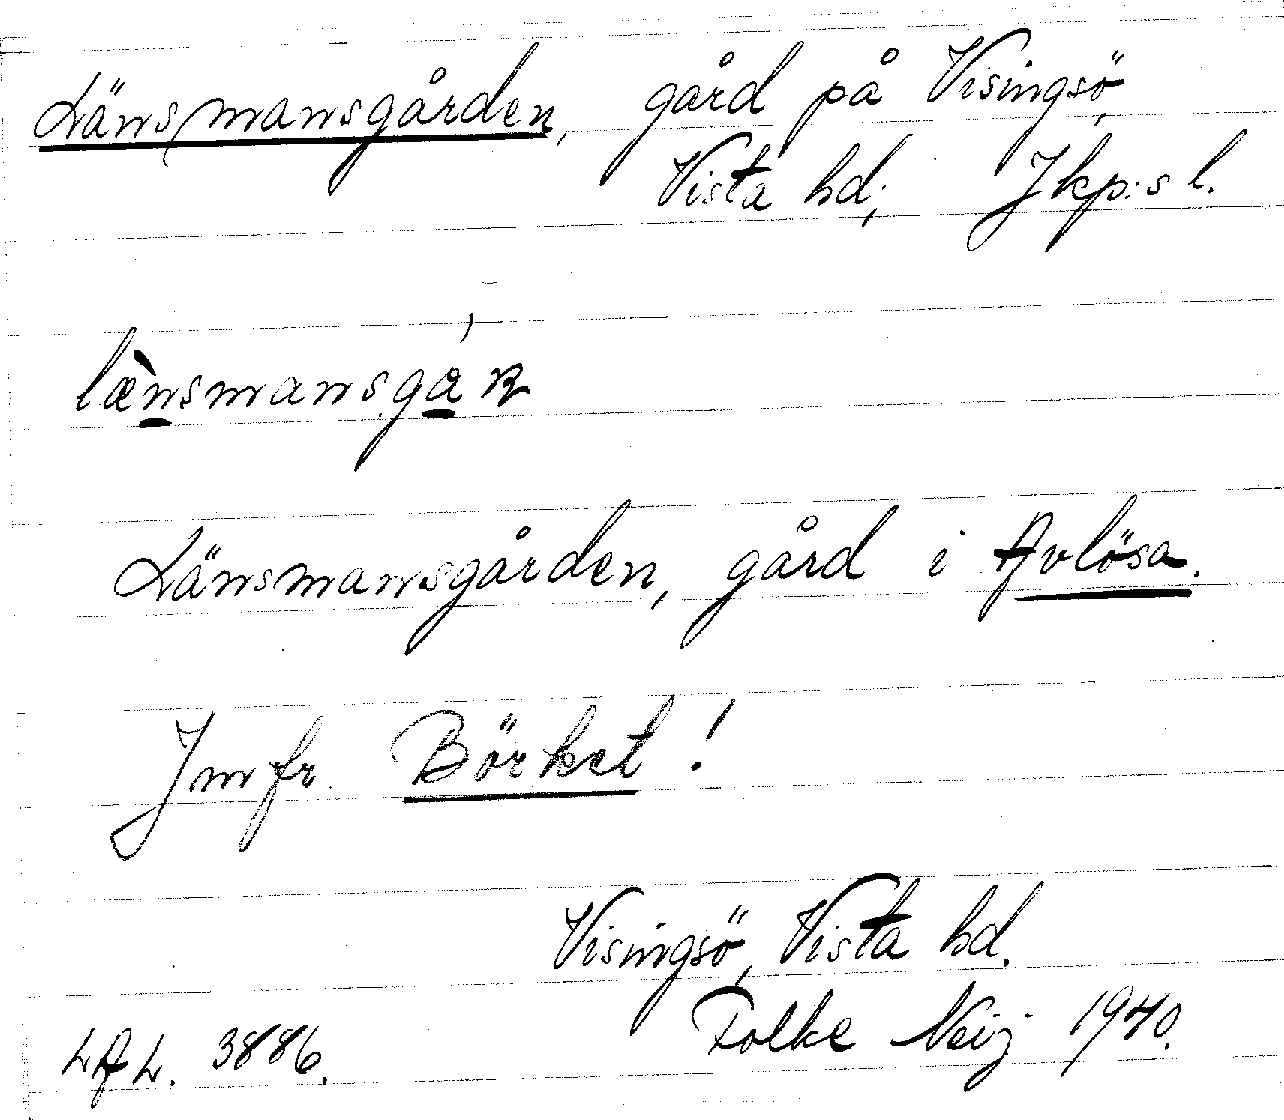 Länsmansgården, gård på Visingsö,
Vista hd; Jkp:s l.
Länsmansgården, gård i Avlösa.
Jmfr. Börket!
Visingsö, Vista hd.
LAL. 3886. Folke Neij 1940.